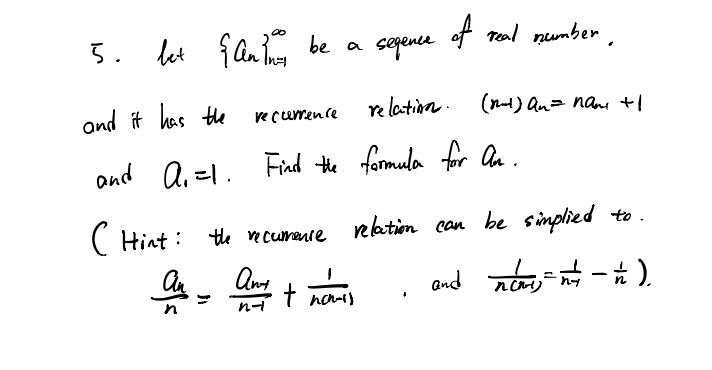 5. let {an}∞n=1 be a seqence of real number.
and it has the recurrence relation. (n-1) an = nan-1 + 1
and a1 = 1. Find the formula for an.
( Hint: the recurrence relation can be simplied to.
an/n = an-1/n-1 + 1/n(n-1) . and 1/n(n-1) = 1/n-1 - 1/n ).